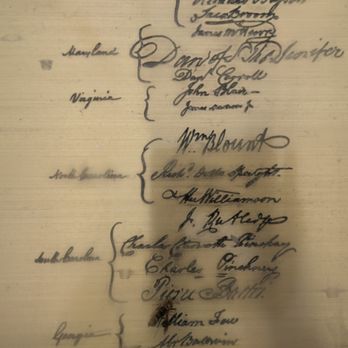 Jaco Broom
James McHenry
Maryland
Dan of St Tho Jenifer
Danl Carroll
Virginia
John Blair
James Madison Jr
Wm Blount
North Carolina
Richd Dobbs Spaight.
Hu Williamson
J. Rutledge
South Carolina
Charles Cotesworth Pinckney
Charles Pinckney
Pierce Butler.
Georgia
William Few
Abr Baldwin